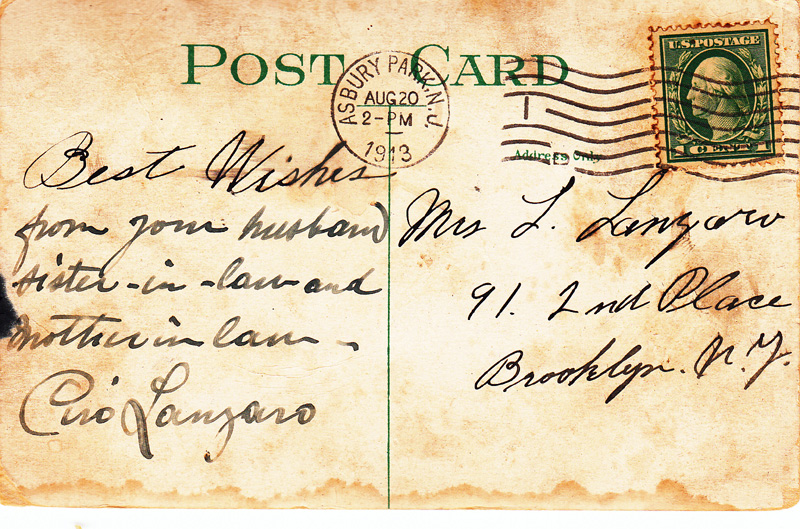 POST CARD
ASBURY PARK, N.J.
AUG 20
2-PM
1913
U.S. POSTAGE
Address Only
Best Wishes
from your husband
sister-in-law and
mother in law -
Ciro Lanzaro
Mrs L. Lanzaro
91. 2nd Place
Brooklyn. N.Y.